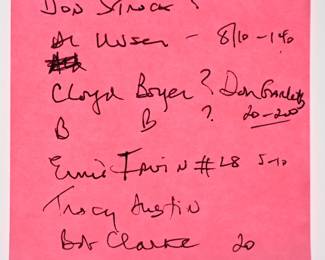 Don Strock?
Al Unser - 8/10-140
Cloyd Boyer ? Don Garlits
B B ? 20-200
Ernie Irvin #28 5-10
Tracy Austin
Bob Clarke 20